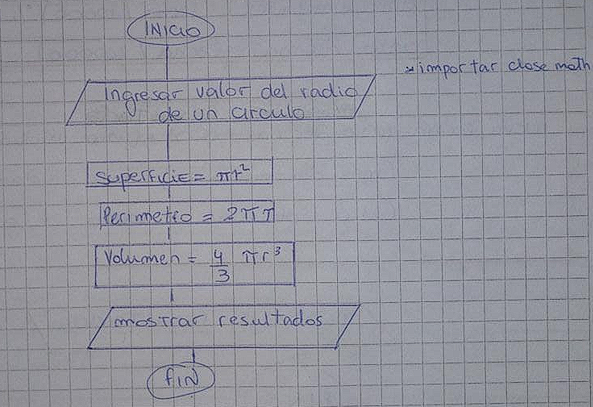 INICIO
* importar clase math
Ingresar valor del radio
de un circulo
Superficie = πr²
Perimetro = 2πr
Volumen = 4/3 πr³
mostrar resultados
FIN